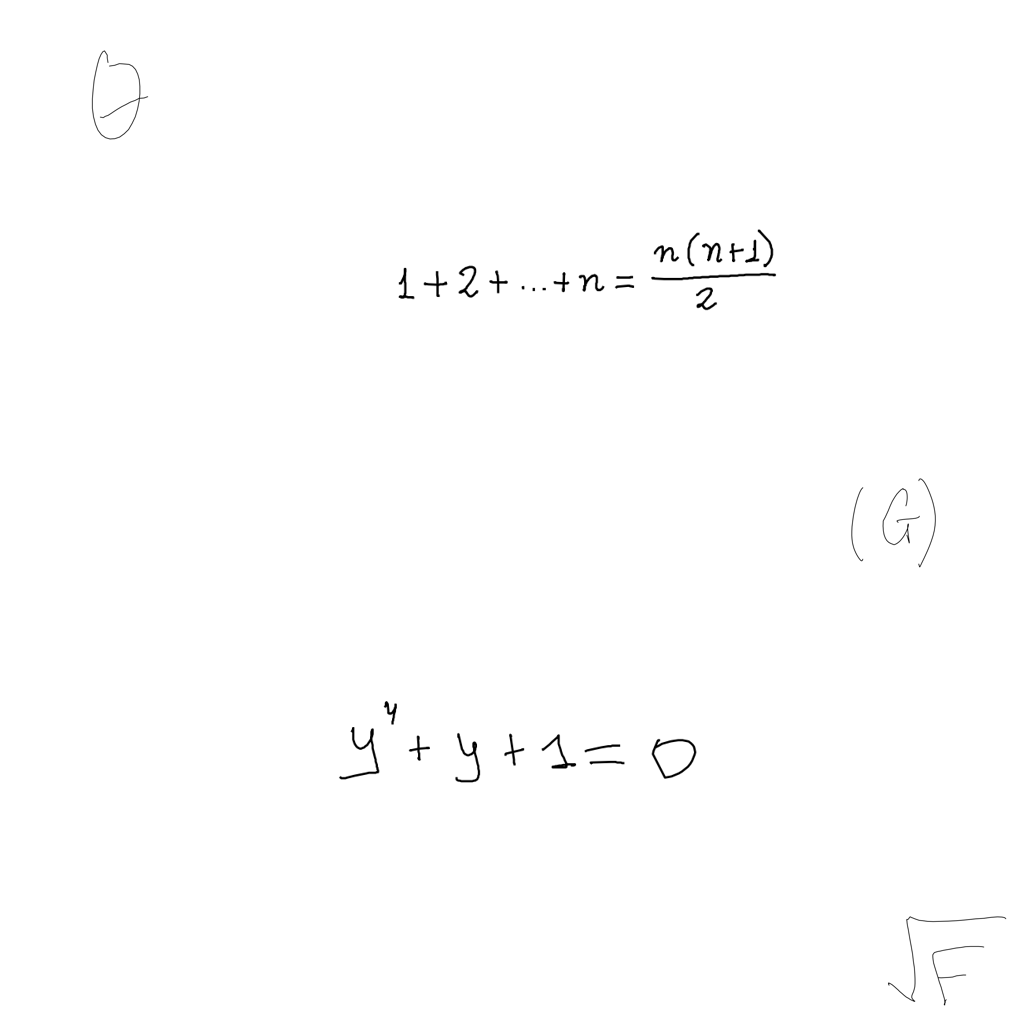 θ
1+2+...+n = \frac{n(n+1)}{2}
(G)
y^{y}+y+1=0
√F